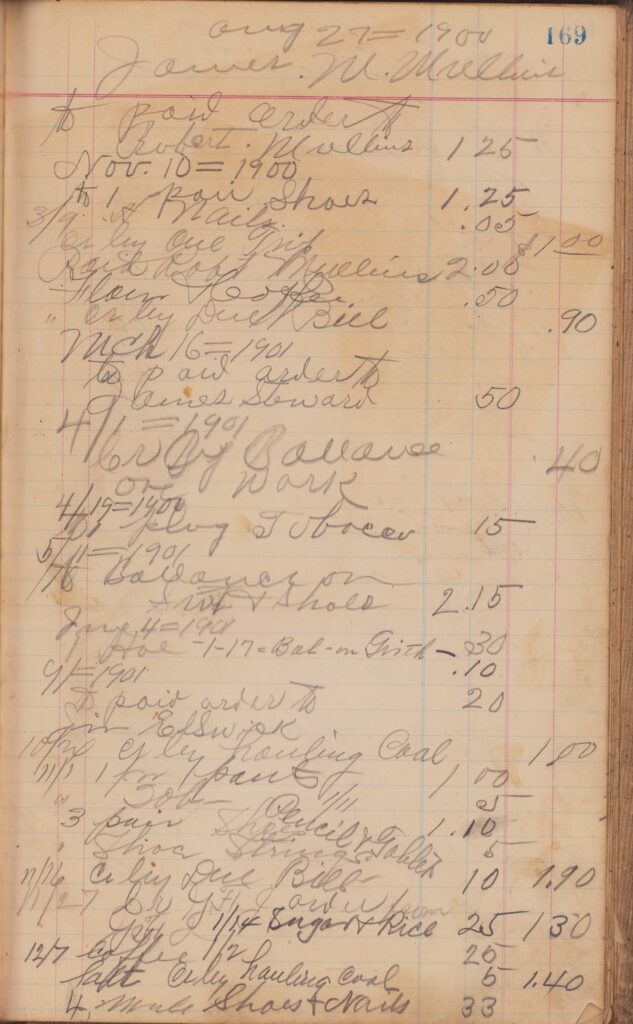 169
Aug 27=1900
James. M. Mullins
to paid order to
Robert. Mullins 1 25
Nov. 10=1900
to 1 pair Shoes 1.25
3/9 Nails .05
Cr by One $1.00
Paid Robt Mullins 2.00
Flour & Coffee .50
" Cr by Due Bill .90
Mch 16=1901
to paid order to
James Steward 50
4/1=1901
Cr By Ballance 40
on Work
4/19=1900
to plug Tobacco 15
5/11=1901
to Ballance on
& Shoes 2.15
June 4=1901
1 Hoe -1-17= Bal- on - 30
9/1=1901 .10
to paid order to 20
Jim Elswick
10/20 Cr by hauling Coal 1 00
11/1 1 pr pants 1 00
" 5
3 pair Pencil & Tablet 1.10
" Shoe Strings 5
11/26 Cr by Due Bill 10 1.90
11/27 Cr from
1/14 Sugar & Rice 25 130
12/7 Coffee 1/2 25
Salt Cr by hauling Coal 5 1.40
4, Mule Shoes & Nails 33